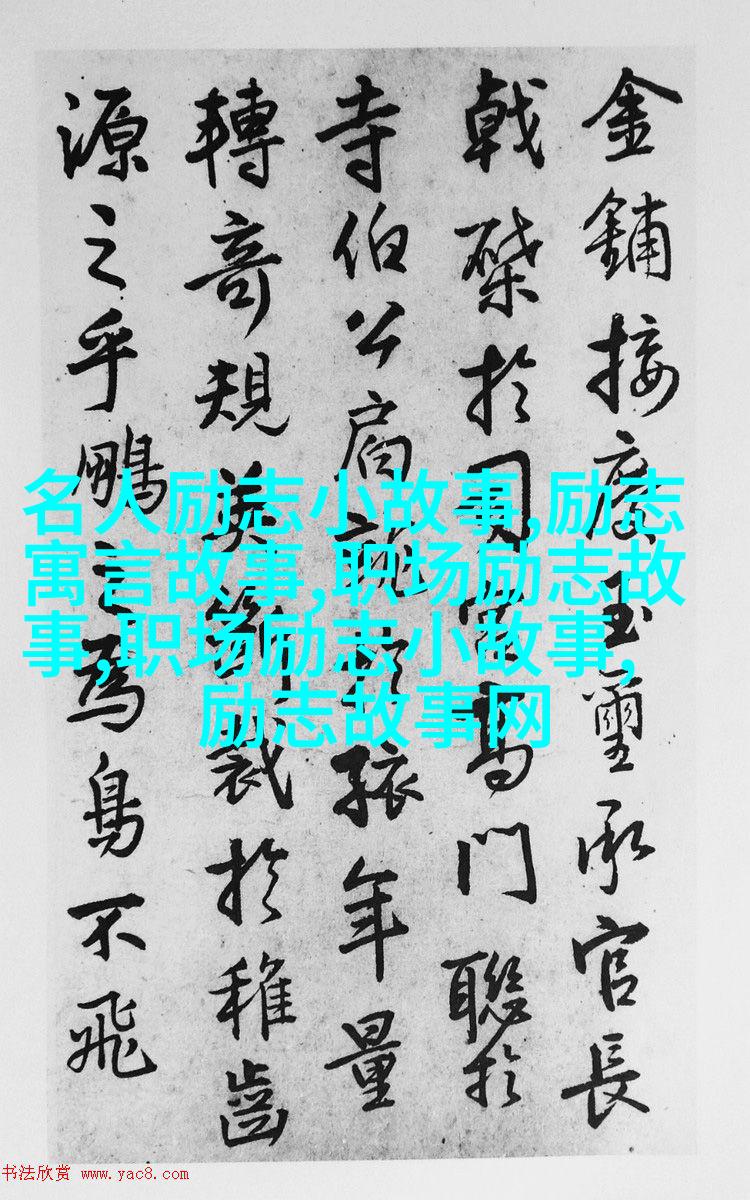 金鋪接慶玉璽承官長
戟於司高門聯於
寺伯公孩年量
轉奇規英節裁於稚齒
源之乎鵬之為鳥不飛
名人励志小故事,励志
寓言故事,职场励志故
事,职场励志小故事,
励志故事网
书法欣赏 www.yac8.com